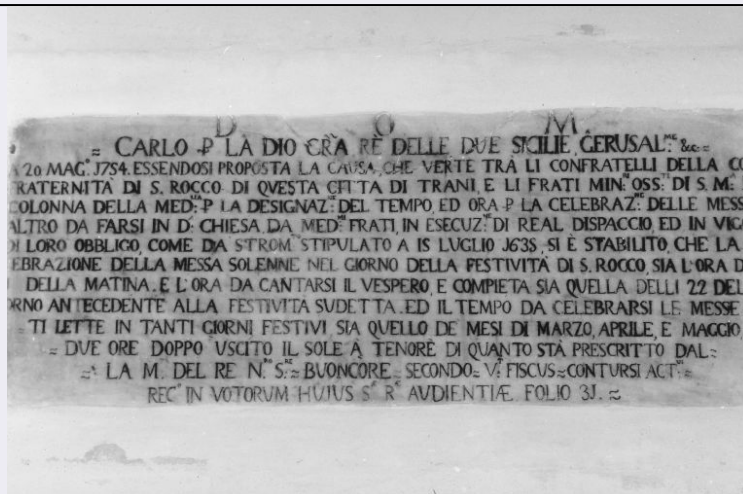 D O M.
= CARLO P LA DIO GRÃ RÈ DELLE DUE SICILIE, GERUSAL.ᴹᴱ &c=
20 MAG.º J754. ESSENDOSI PROPOSTA LA CAUSA, CHE VERTE TRÀ LI CONFRATELLI DELLA CO
RATERNITÀ DI S. ROCCO DI QVESTA CITTÀ DI TRANI, E LI FRATI MIN: OSS: DI S. M:
COLONNA DELLA MED: P LA DESIGNAZ: DEL TEMPO, ED ORA P LA CELEBRAZ: DELLE MESS
ALTRO DA FARSI IN D: CHIESA DA MED: FRATI, IN ESECUZ: DI REAL DISPACCIO, ED IN VIG
DI LORO OBBLIGO, COME DA STROM STIPULATO A 15 LUGLIO J638, SI È STABILITO, CHE LA
EBRAZIONE DELLA MESSA SOLENNE NEL GIORNO DELLA FESTIVITÀ DI S. ROCCO, SIA L'ORA D
DELLA MATINA. E L'ORA DA CANTARSI IL VESPERO, E COMPIETA SIA QUELLA DELLI 22 DEL
ORNO ANTECEDENTE ALLA FESTIVITA SUDETTA. ED IL TEMPO DA CELEBRARSI LE MESSE
TI LETTE IN TANTI GIORNI FESTIVI, SIA QUELLO DE MESI DI MARZO, APRILE, E MAGGIO,
= DUE ORE DOPPO USCITO IL SOLE A TENORE DI QUANTO STÀ PRESCRITTO DAL=
LA M: DEL RE N: S: = BUONCORE = SECONDO = V: FISCUS = CONTURSI ACT:
REC: IN VOTORUM HUJUS S: R: AUDIENTIÆ FOLIO 3J. =